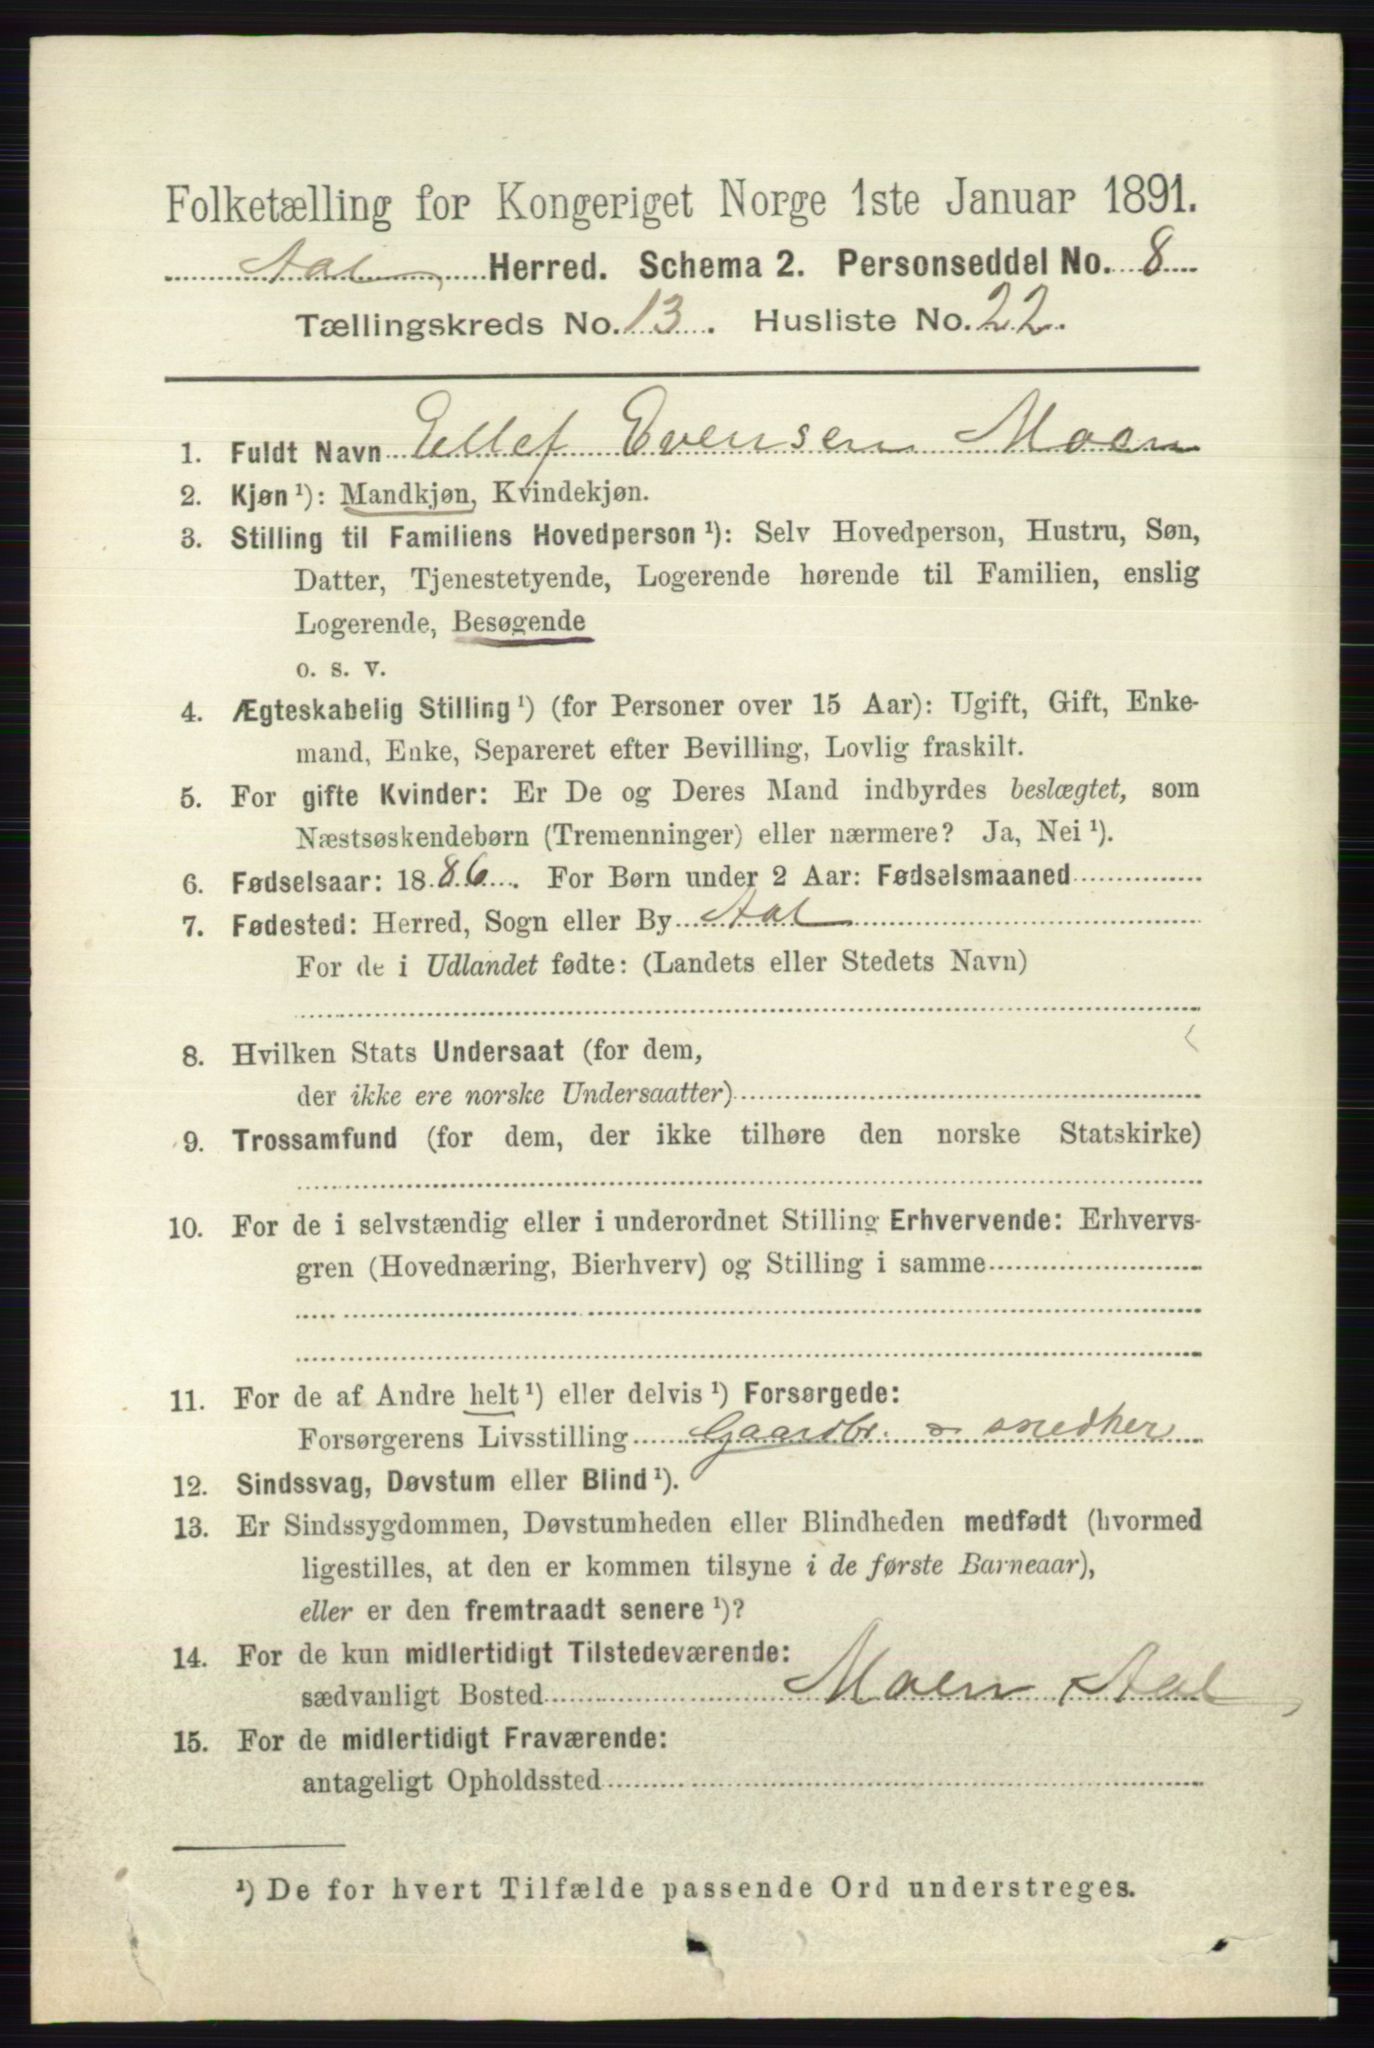 Folketælling for Kongeriget Norge 1ste Januar 1891.
Aal Herred. Schema 2. Personseddel No. 8
Tællingskreds No. 13. Husliste No. 22.
1. Fuldt Navn Ellef Evensen Moen
2. Kjøn ¹): Mandkjøn, Kvindekjøn.
3. Stilling til Familiens Hovedperson ¹): Selv Hovedperson, Hustru, Søn,
Datter, Tjenestetyende, Logerende hørende til Familien, enslig
Logerende, Besøgende
o. s. v.
4. Ægteskabelig Stilling ¹) (for Personer over 15 Aar): Ugift, Gift, Enke-
mand, Enke, Separeret efter Bevilling, Lovlig fraskilt.
5. For gifte Kvinder: Er De og Deres Mand indbyrdes beslægtet, som
Næstsøskendebørn (Tremenninger) eller nærmere? Ja, Nei ¹).
6. Fødselsaar: 1886. For Børn under 2 Aar: Fødselsmaaned
7. Fødested: Herred, Sogn eller By Aal
For de i Udlandet fødte: (Landets eller Stedets Navn)
8. Hvilken Stats Undersaat (for dem,
der ikke ere norske Undersaatter)
9. Trossamfund (for dem, der ikke tilhøre den norske Statskirke)
10. For de i selvstændig eller i underordnet Stilling Erhvervende: Erhvervs-
gren (Hovednæring, Bierhverv) og Stilling i samme
11. For de af Andre helt ¹) eller delvis ¹) Forsørgede:
Forsørgerens Livsstilling Gaardbr. & snedker
12. Sindssvag, Døvstum eller Blind ¹).
13. Er Sindssygdommen, Døvstumheden eller Blindheden medfødt (hvormed
ligestilles, at den er kommen tilsyne i de første Barneaar),
eller er den fremtraadt senere ¹)?
14. For de kun midlertidigt Tilstedeværende:
sædvanligt Bosted Moen Aal
15. For de midlertidigt Fraværende:
antageligt Opholdssted
¹) De for hvert Tilfælde passende Ord understreges.